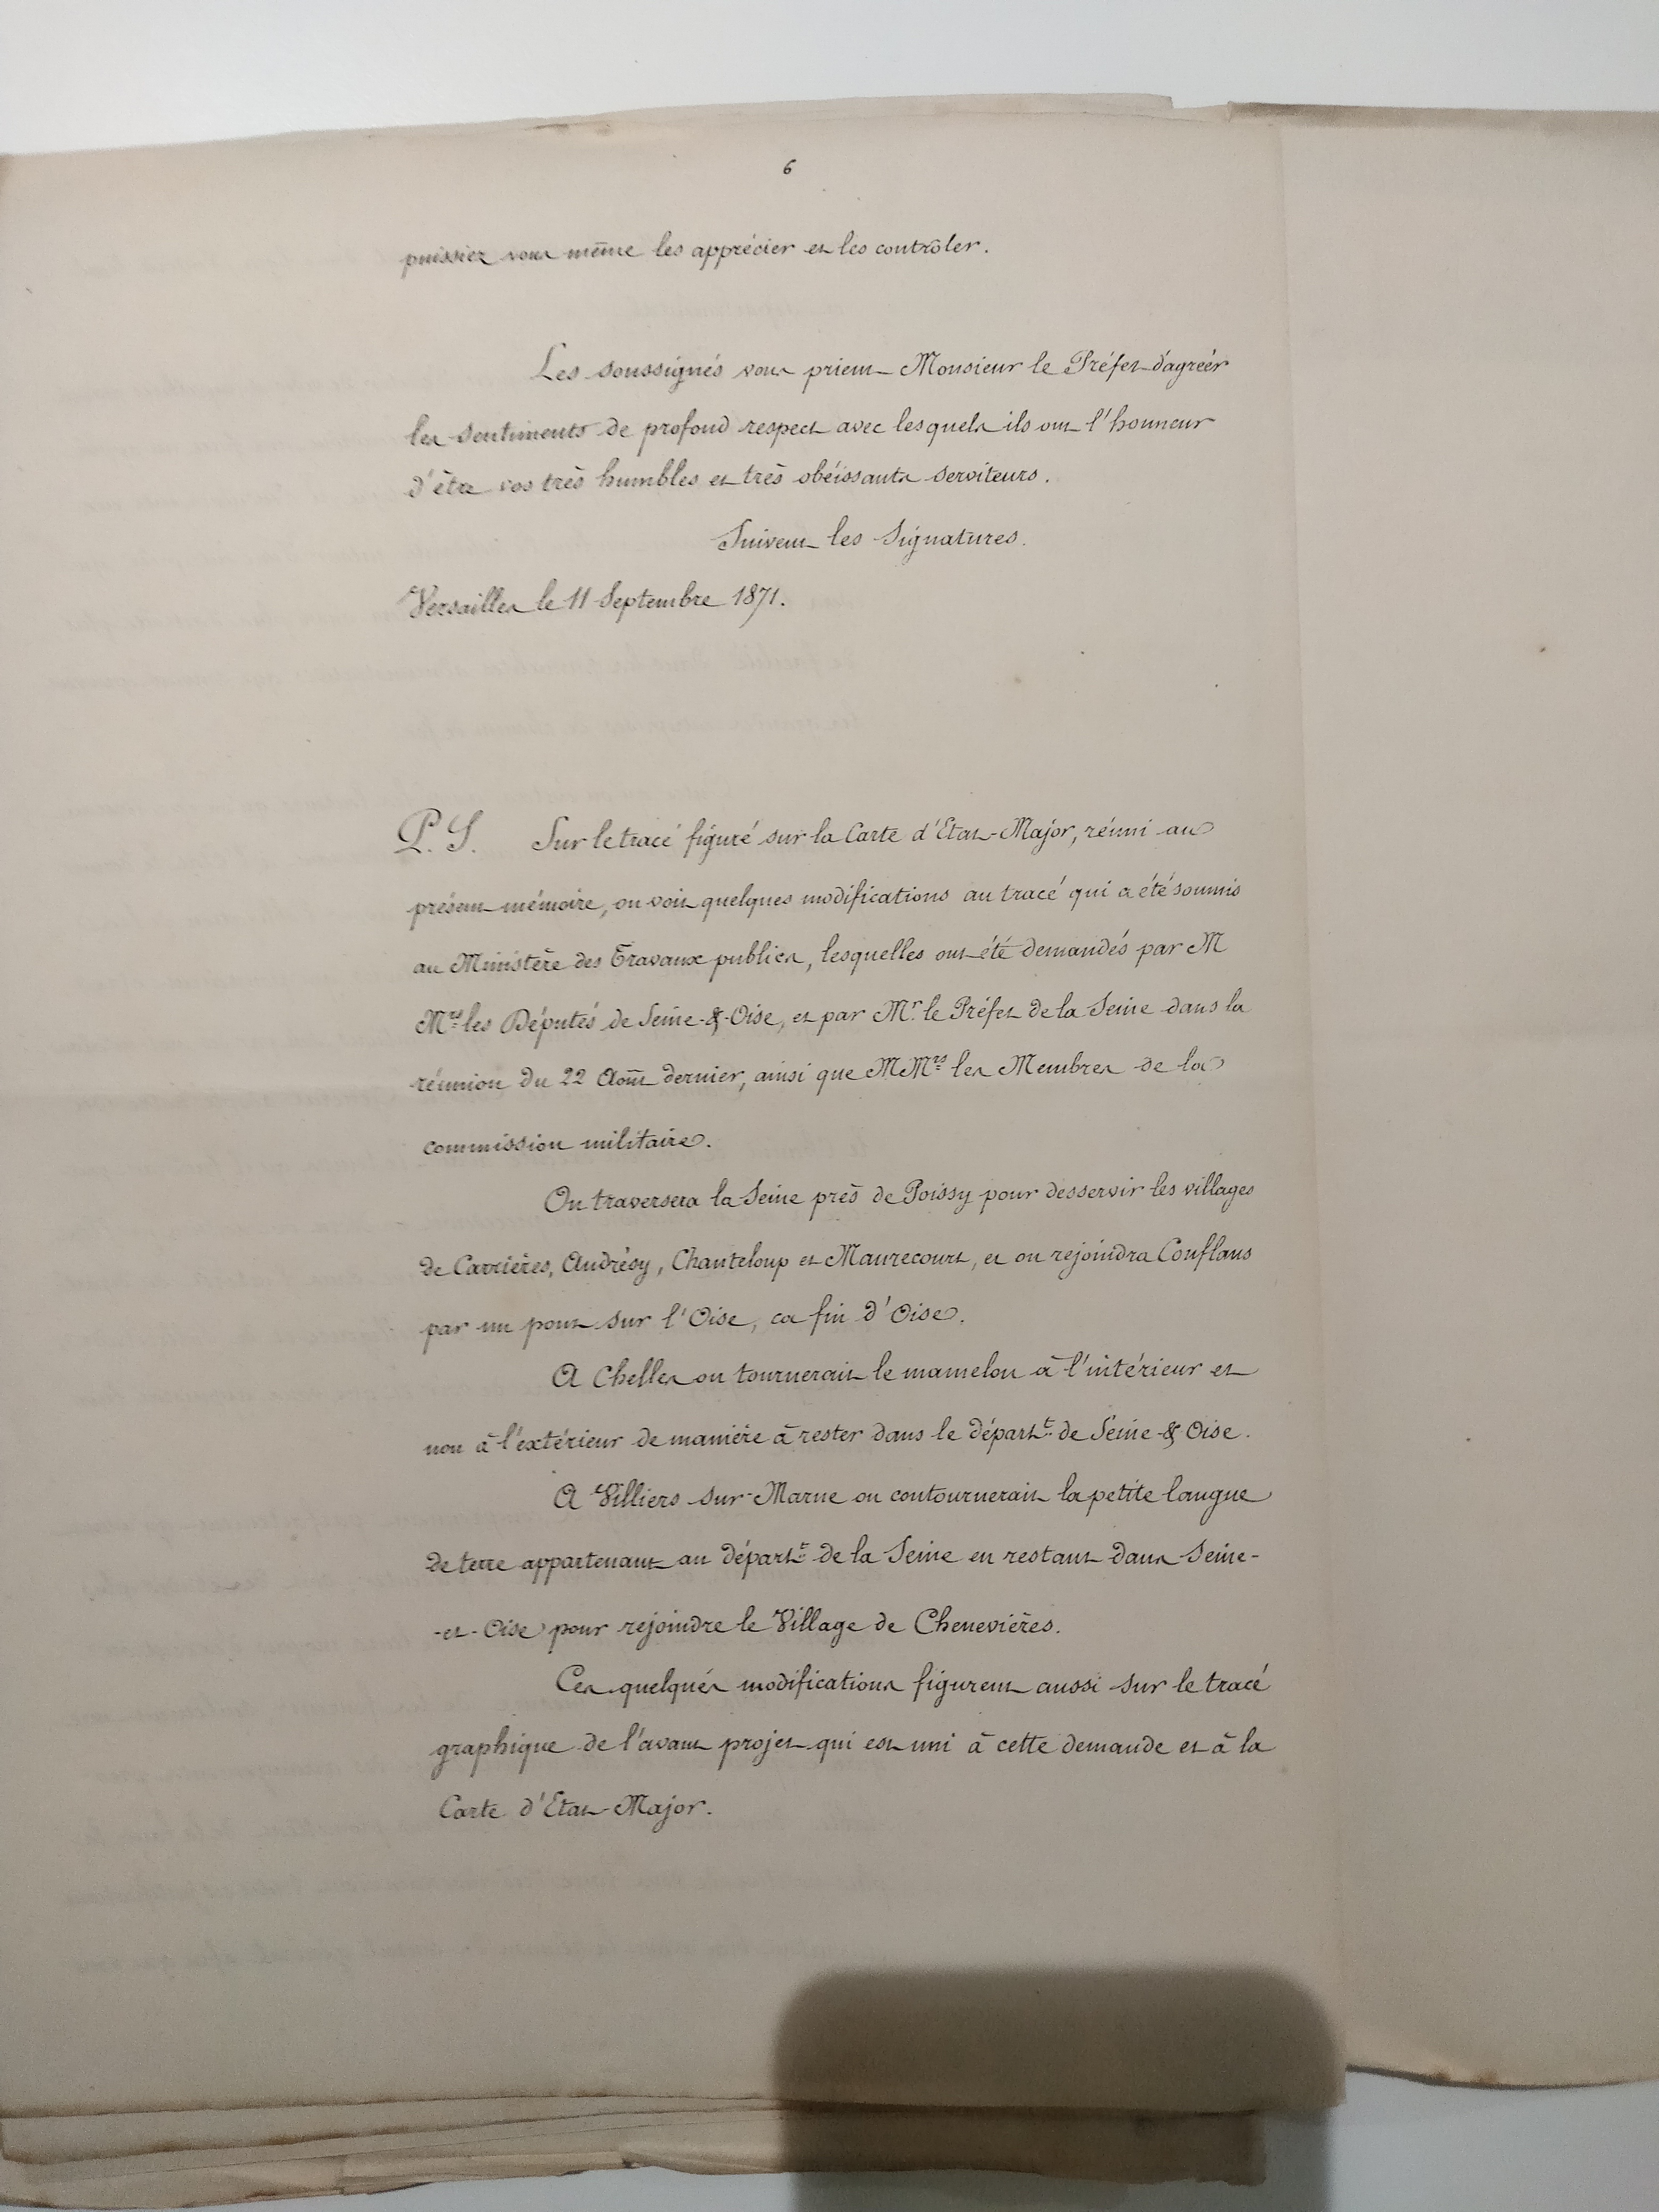 6
puissiez vous même les apprécier et les contrôler.
Les soussignés vous prient Monsieur le Préfet d'agréér
les sentiments de profond respect avec lesquels ils ont l'honneur
d'être vos très humbles et très obéissants serviteurs.
Suivent les Signatures.
Versailles le 11 Septembre 1871.
P. S. Sur le tracé figuré sur la Carte d'Etat-Major, réuni au
présent mémoire, on voit quelques modifications au tracé qui a été soumis
au Ministère des Travaux publics, lesquelles ont été demandés par M
Mrs les Députés de Seine-&-Oise, et par Mr le Préfet de la Seine dans la
réunion du 22 Août dernier, ainsi que MMrs les Membres de la
commission militaire.
On traversera la Seine près de Poissy pour desservir les villages
de Carrières, Andrésy, Chanteloup et Maurecourt, et on rejoindra Conflans
par un pont sur l'Oise, à fin d'Oise.
A Chelles on tournerait le mamelon à l'intérieur et
non à l'extérieur de manière à rester dans le départt de Seine-&-Oise.
A Villiers-sur-Marne on contournerait la petite langue
de terre appartenant au départt de la Seine en restant dans Seine-
-et-Oise pour rejoindre le Village de Chenevières.
Ces quelques modifications figurent aussi sur le tracé
graphique de l'avant projet qui est uni à cette demande et à la
Carte d'Etat-Major.